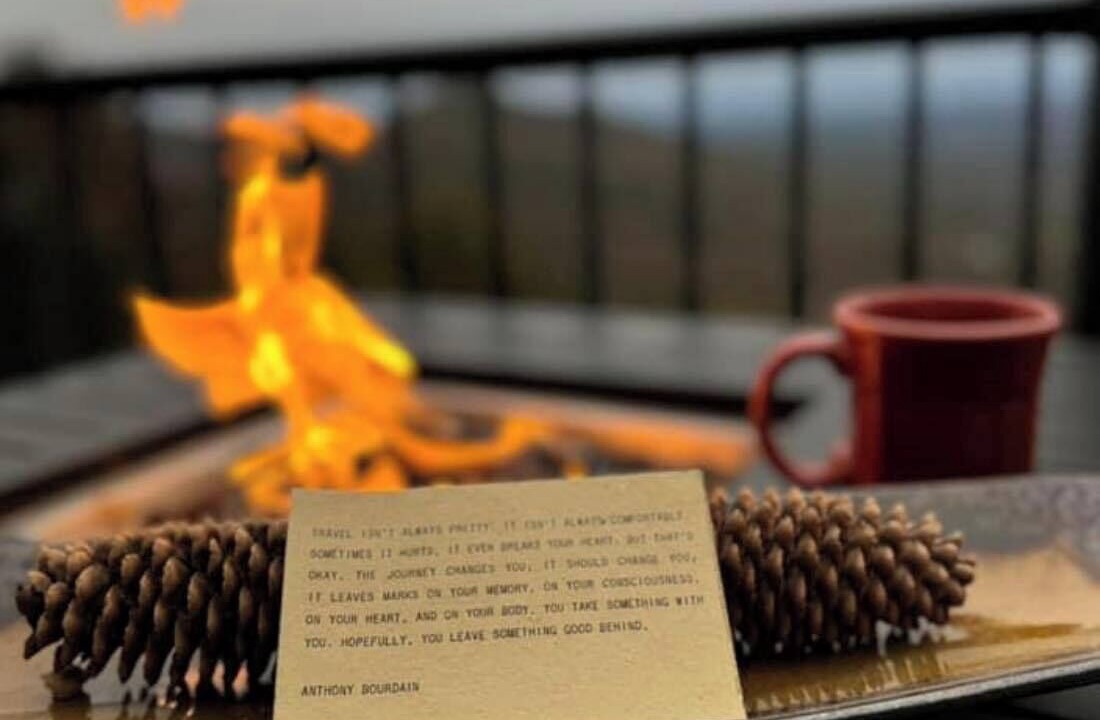 TRAVEL ISN'T ALWAYS PRETTY. IT ISN'T ALWAYS COMFORTABLE.
SOMETIMES IT HURTS, IT EVEN BREAKS YOUR HEART. BUT THAT'S
OKAY. THE JOURNEY CHANGES YOU; IT SHOULD CHANGE YOU,
IT LEAVES MARKS ON YOUR MEMORY, ON YOUR CONSCIOUSNESS,
ON YOUR HEART, AND ON YOUR BODY. YOU TAKE SOMETHING WITH
YOU. HOPEFULLY, YOU LEAVE SOMETHING GOOD BEHIND.
ANTHONY BOURDAIN